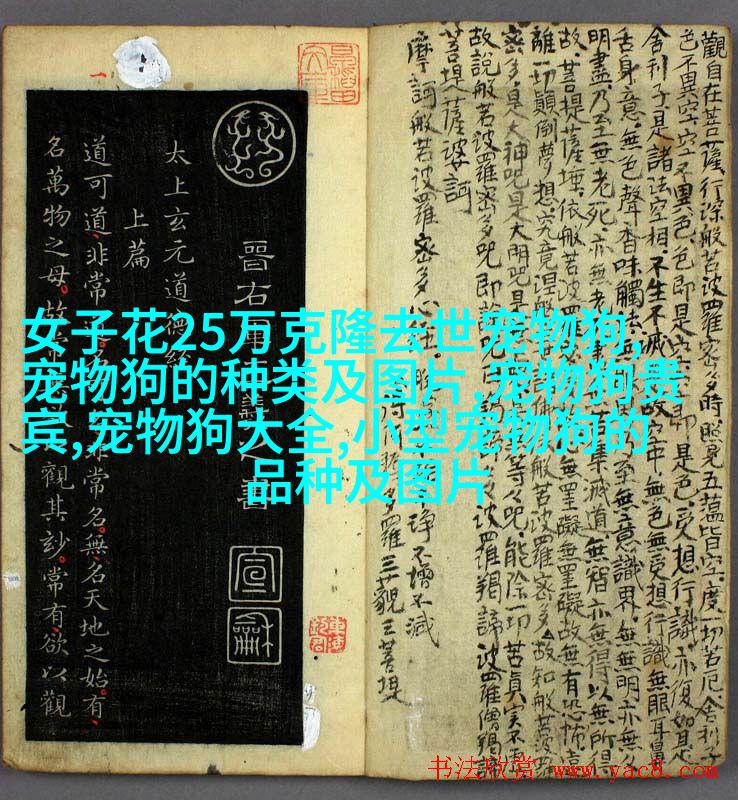 女子花25万克隆去世宠物狗,
宠物狗的种类及图片,宠物狗贵
宾,宠物狗大全,小型宠物狗的
品种及图片
觀自在菩薩行深般若波羅密多時照見五蘊皆空度一切苦厄舍利子
色不異空空不異色色即是空空即是色受想行識亦復如是
舍利子是諸法空相不生不滅故空中無色無受想行識無眼耳鼻
舌身意無色聲香味觸法無至無意識界無無明亦無
明盡乃至無老死亦無老集滅道無智亦無得以無所得
故菩提薩埵依般若波羅無罣礙無罣礙故無有恐怖遠
離一切顛倒夢想究竟涅槃故知般若波
密多是大神咒是大明咒是等咒能除一切苦真實不虛
故說般若波羅密多咒即說波羅揭諦波羅僧揭諦
菩提薩婆訶
摩訶般若波羅密多心經
淨不增不減
得多羅三藐三菩提
晉右軍羲之書
宣龢
太上玄元道德經
上篇
道可道非常非常名無名天地之始有
名萬物之母故常觀其妙常有欲以觀
书法欣赏 www.yac8.com